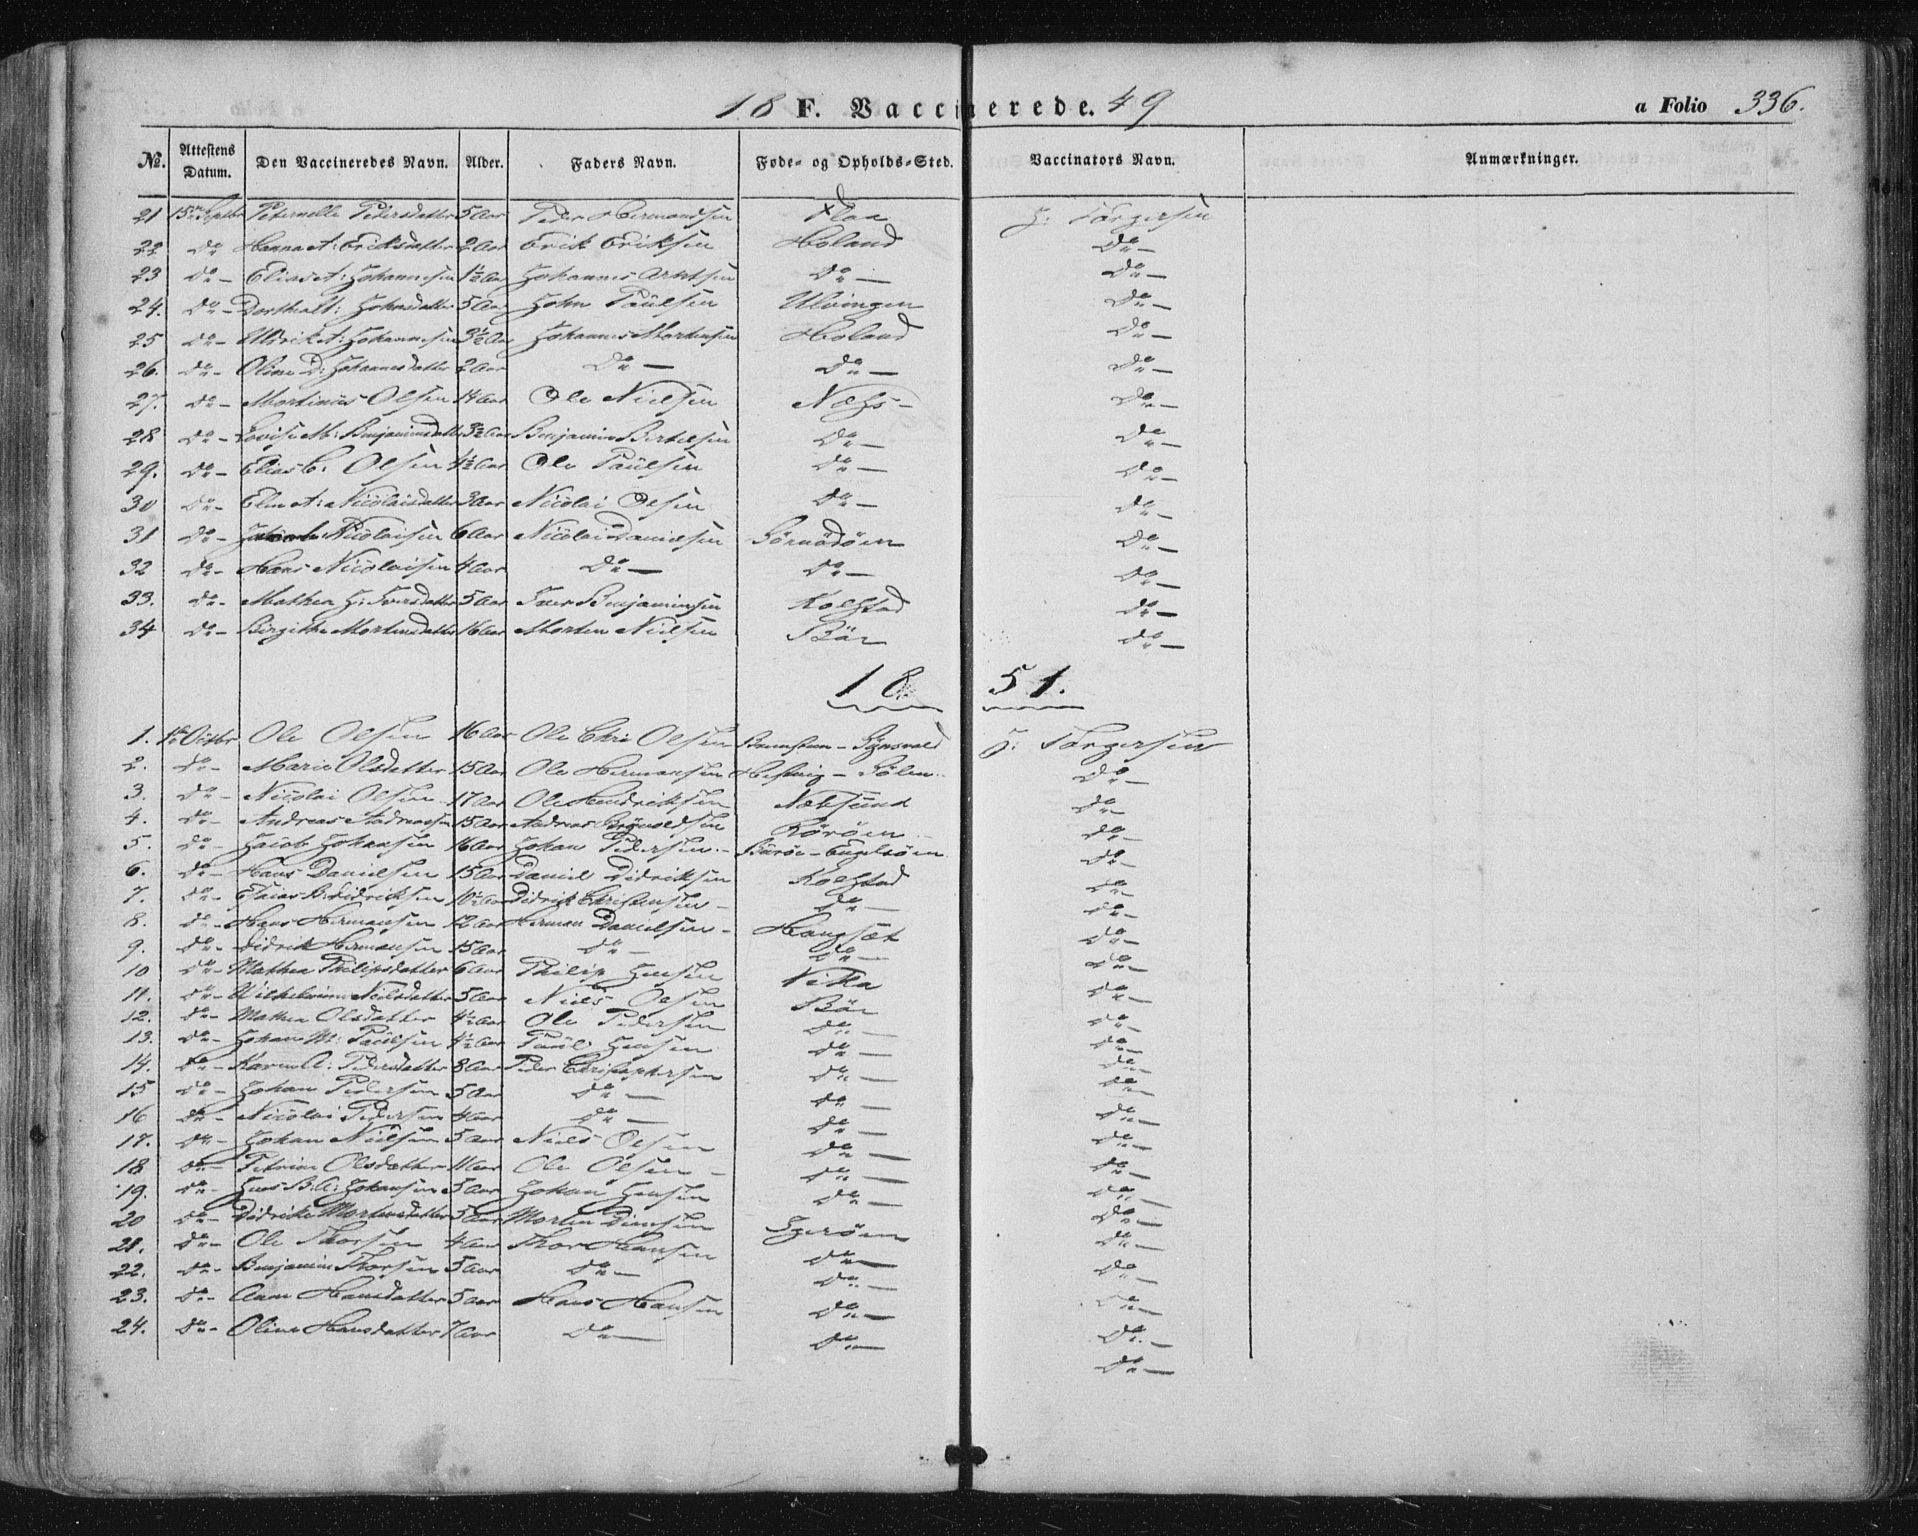 18 F. Vaccinerede. 49 a Folio 336.
No. Attestens Datum. Den Vaccineredes Navn. Alder. Faders Navn. Føde- og Opholds-Sted. Vaccinators Navn. Anmærkninger.
21 15 Septbr Peternelle Pedersdatter 5 Aar Peder Hermandsen Flaa J: Torgersen
22 Do Hanna A: Eriksdatter 2 Aar Erik Eriksen Høland Do —
23 Do — Elias A: Johannesen 1½ Aar Johannes Arntsen Do — Do —
24. Do — Johnsdatter 5 Aar John Paulsen Ulvingen Do —
25 Do — Ulrik A: Johannesen 3½ Aar Johannes Mortensen Høland Do —
26. Do — Oline D: Johannesdatter 2 Aar Do — Do — Do —
27. Do — Martinus Olsen 14 Aar Ole Nielsen Næss — Do —
28 Do — Lovise M: Benjaminsdatter 3½ Aar Benjamin Bertelsen Do — Do —
29. Do — Elias C: Olsen 4½ Aar Ole Paulsen Do — Do —
30 Do — Elen A: Nicolaisdatter 3 Aar Nicolai Olsen Do — Do —
31 Do — Nicolaisen 6 Aar Nicolai Danielsen Do —
32 Do — Hans Nicolaisen 4 Aar Do — Do — Do —
33. Do — Mathea J: Iversdatter 5 Aar Iver Benjaminsen Kolstad Do —
34 Do — Birgithe Mortensdatter 16 Aar Morten Nielsen Bær Do —
18 51.
1. 1 Octbr Ole Olsen 16 Aar Ole Chr: Olsen J: Torgersen
2. Do — Marie Olsdatter 15 Aar Ole Hermansen Do —
3. Do — Nicolai Olsen 17 Aar Ole Hendriksen Næssund Do —
4. Do — Andreas Andreasen 15 Aar Andreas Rørøen Do —
5. Do — Jacob Johansen 16 Aar Johan Pedersen — Burøe — Engelsøen Do —
6. Do — Hans Danielsen 15 Aar Daniel Didriksen Kolstad Do —
7. Do — Didriksen 10½ Aar Didrik Christensen — Do — Do —
8. Do — Hans Hermansen 12 Aar Herman Danielsen — Hangsæt Do —
9. Do — Didrik Hermansen 15 Aar Do — Do — Do —
10 Do — Mathea Philipsdatter 6 Aar Philip Jensen Vika Do —
11. Do — Nielsdatter 5 Aar Niels Olsen Bær Do —
12. Do — Mathea Olsdatter 4½ Aar Ole Pedersen Do — Do —
13. Do — Johan M: Paulsen 4½ Aar Paul Jensen Do — Do —
14. Do — Karen A: Pedersdatter 8 Aar Peder Christophersen Do — Do —
15 Do — Johan Pedersen 5 Aar Do — Do — Do —
16 Do — Nicolai Pedersen 4 Aar Do — Do — Do —
17. Do — Johan Nielsen 5 Aar Niels Olsen Do — Do —
18 Do — Petrine Olsdatter 11 Aar Ole Olsen — Do — Do —
19. Do — Jens B: A: Johansen 5 Aar Johan Jensen Do — Do —
20 Do — Didrike Mortensdatter 5 Aar Morten Igerøen Do —
21. Do — Ole Thorsen 4 Aar Thor Hansen Do — Do —
22. Do — Benjamin Thorsen 5 Aar Do — Do — Do —
23. Do — Ane Hansdatter 5 Aar Hans Hansen Do — Do —
24. Do — Oline Hansdatter 7 Aar Do — Do — Do —
Do —